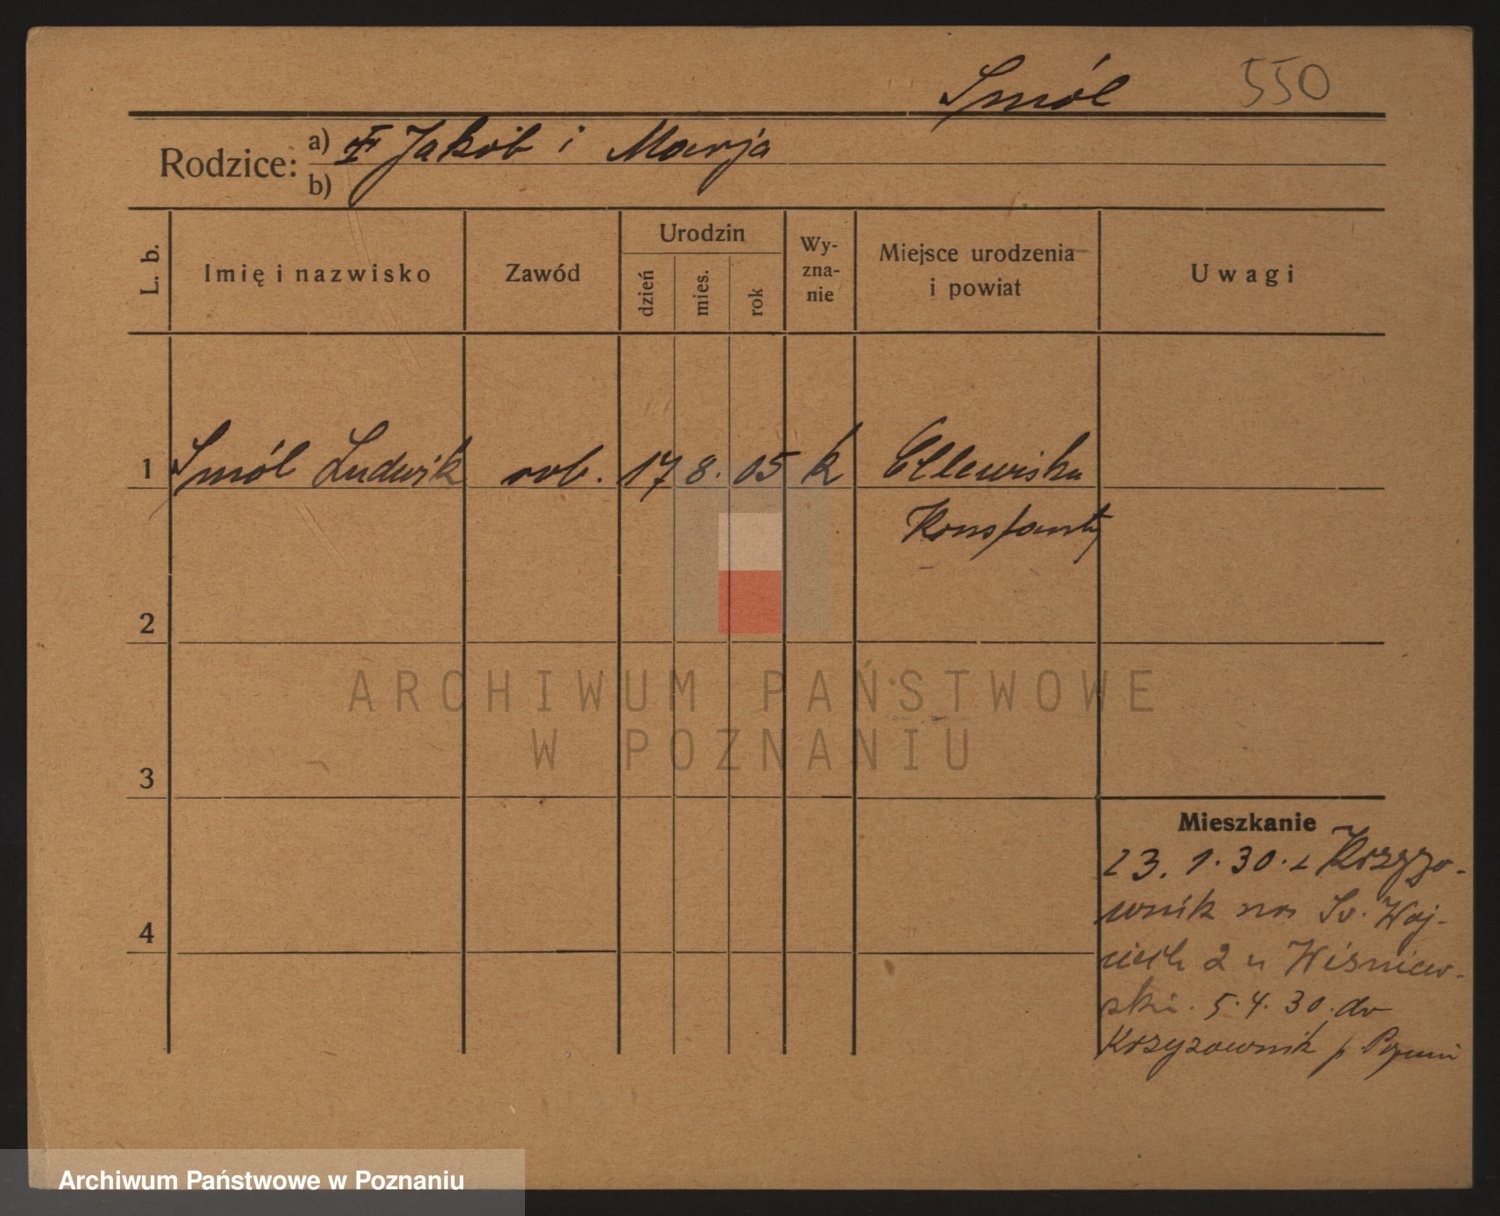 Smól 550
Rodzice: a) Jakób i Marja
b)
L. b.
Imię i nazwisko
Zawód
Urodzin
dzień
mies.
rok
Wy-
zna-
nie
Miejsce urodzenia
i powiat
Uwagi
1 Smól Ludwik rob. 17 8. 05 k
Konstanty
2
ARCHIWUM PAŃSTWOWE
W POZNANIU
3
Mieszkanie
23. 1. 30. z Krzyżo-
wnik na Św. Woj-
ciech 2 u Wiśniew-
4
ski. 5. 4. 30. do
Krzyżownik p
Archiwum Państwowe w Poznaniu